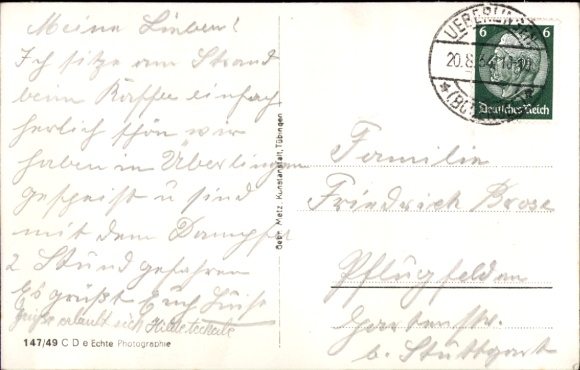 Meine Lieben!
Ich sitze am Strand
beim Kaffee einfach
herlich schön wir
haben in Überlingen
gespeist u sind
mit dem Dampfer
2 Stund gefahren
Es grüßt Euch Luise
Grüße erlaubt sich Hilde
147/49 C D e Echte Photographie
Gebr. Metz, Kunstanstalt, Tübingen
UEBERLINGEN
20.8.34
(BODENSEE)
6 6
Deutsches Reich
Familie
Friedrich Brose
Pflugfelden
Gartenstr.
b. Stuttgart